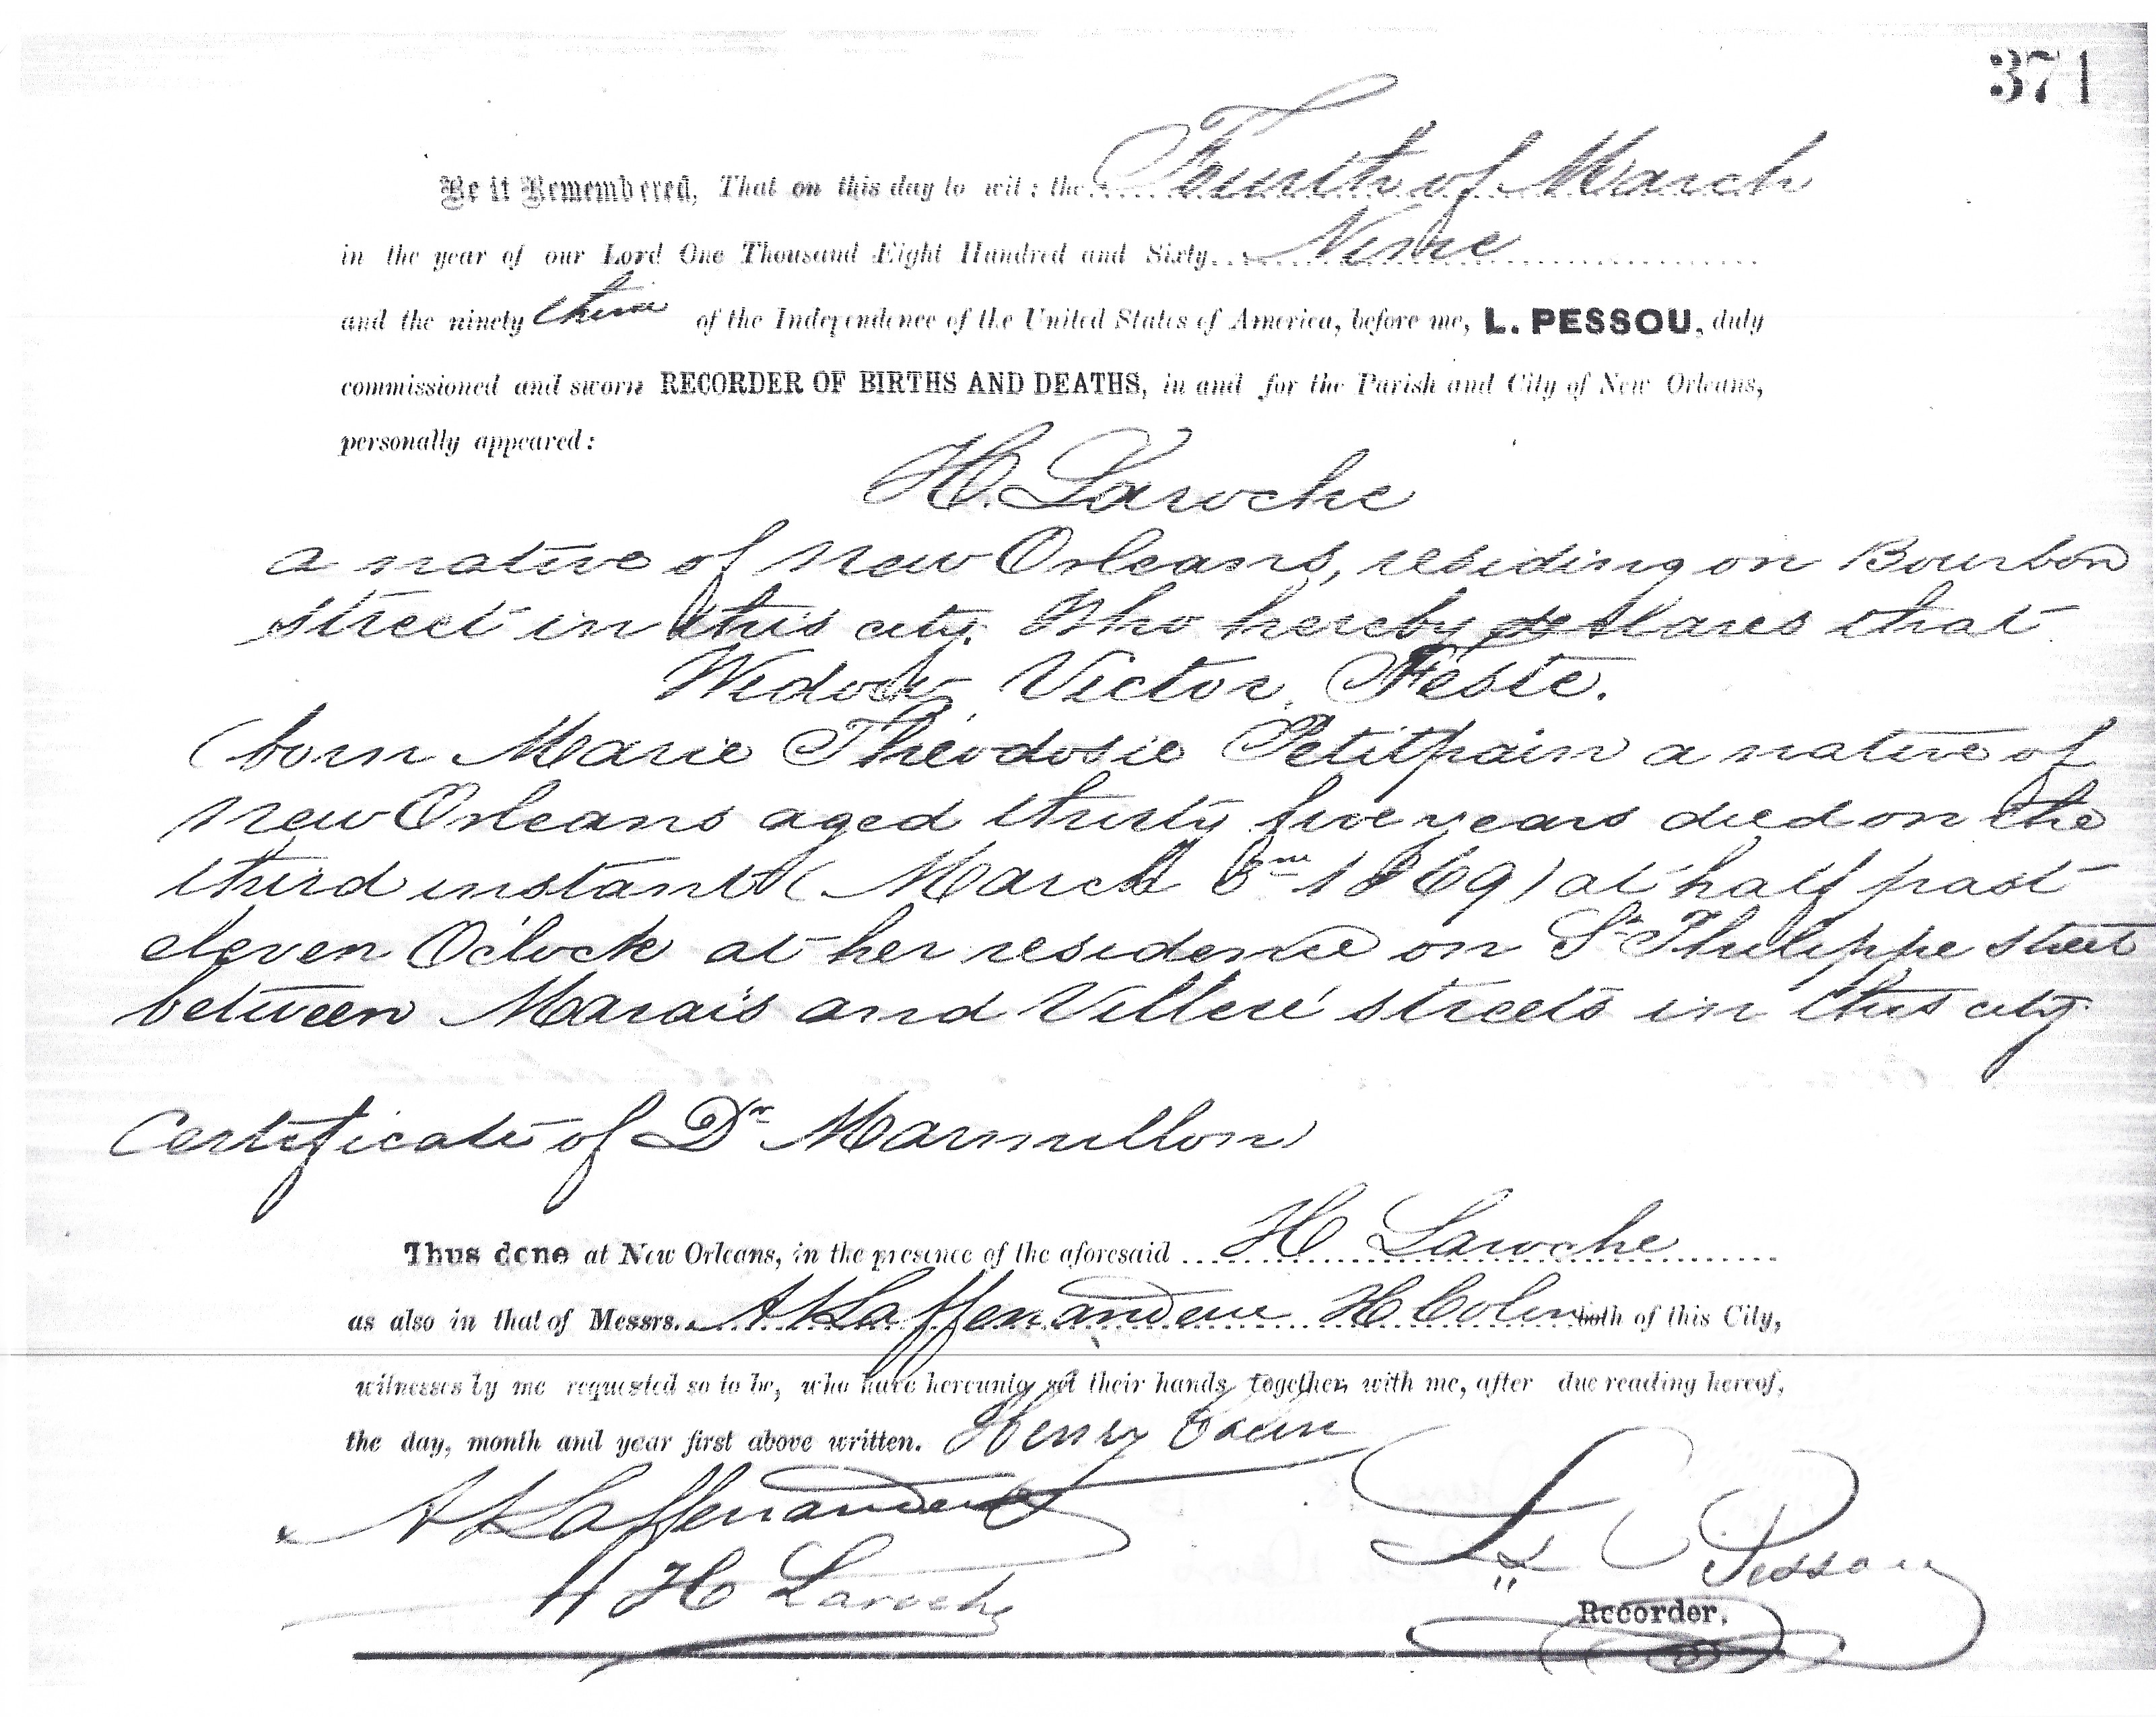 371
Be it Remembered, That on this day to wit: the Fourth of March
in the year of our Lord One Thousand Eight Hundred and Sixty Nine
and the ninety third of the Independence of the United States of America, before me, L. PESSOU, duly
commissioned and sworn RECORDER OF BIRTHS AND DEATHS, in and for the Parish and City of New Orleans,
personally appeared:
H. Laroche
a native of New Orleans, residing on Bourbon
street in this city. Who hereby declares that
Widow Victor Feste.
(born Marie Théodosie Petitpain a native of
New Orleans aged thirty five years died on the
third instant (March 3 1869) at half past
eleven O'clock at her residence on St Philippe street
between Marais and Villeré streets in this city
Certificate of Dr Marmillon
Thus done at New Orleans, in the presence of the aforesaid H Laroche
as also in that of Messrs. H Colin both of this City,
witnesses by me requested so to be, who have hereunto set their hands together with me, after due reading hereof,
the day, month and year first above written. Henry Colin
H Laroche
Pessou
Recorder.